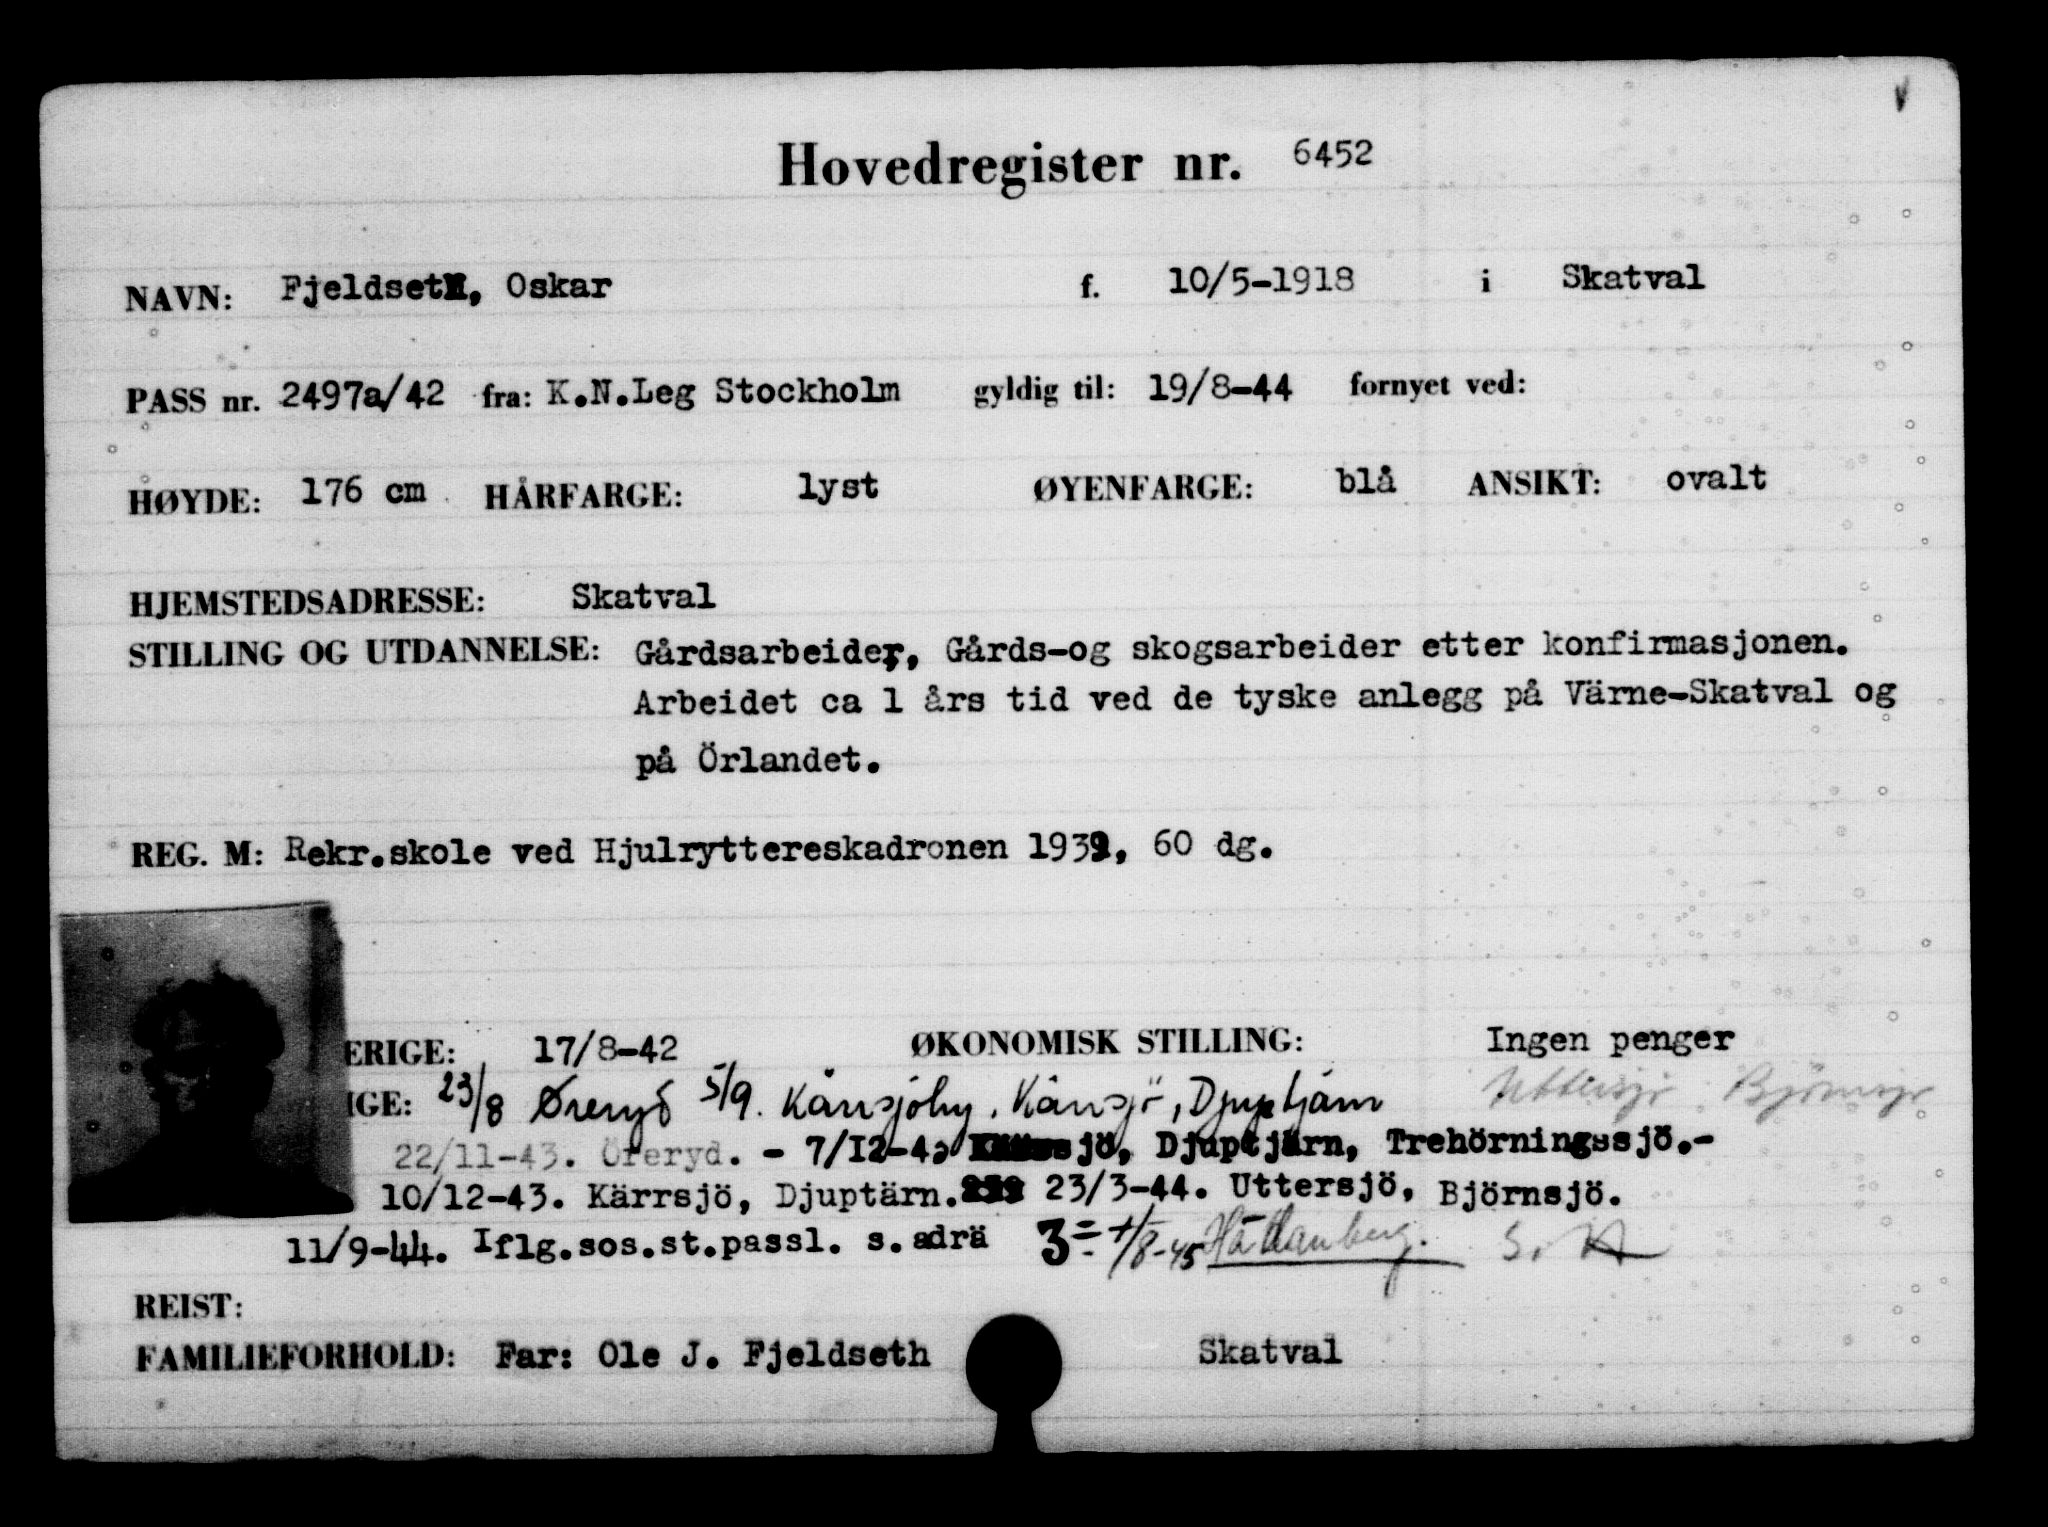 Hovedregister nr. 6452
NAVN: Fjeldseth, Oskar f. 10/5-1918 i Skatval
PASS nr. 2497a/42 fra: K.N.Leg Stockholm gyldig til: 19/8-44 fornyet ved:
HØYDE: 176 cm HÅRFARGE: lyst ØYENFARGE: blå ANSIKT: ovalt
HJEMSTEDSADRESSE: Skatval
STILLING OG UTDANNELSE: Gårdsarbeider, Gårds-og skogsarbeider etter konfirmasjonen.
Arbeidet ca 1 års tid ved de tyske anlegg på Värne-Skatval og
på Örlandet.
REG. M: Rekr.skole ved Hjulryttereskadronen 1939, 60 dg.
ERIGE: 17/8-42 ØKONOMISK STILLING: Ingen penger
IGE: 23/8 Øreryd 5/9. Djuptjärn Uttersjö Björnsjö
22/11-43. Öreryd. - 7/12-43 Djuptjärn, Trehörningssjö.-
10/12-43. Kärrsjö, Djuptärn. 23/3-44. Uttersjö, Björnsjö.
11/9-44. Iflg.sos.st.passl. s.adrä
REIST:
FAMILIEFORHOLD: Far: Ole J. Fjeldseth Skatval